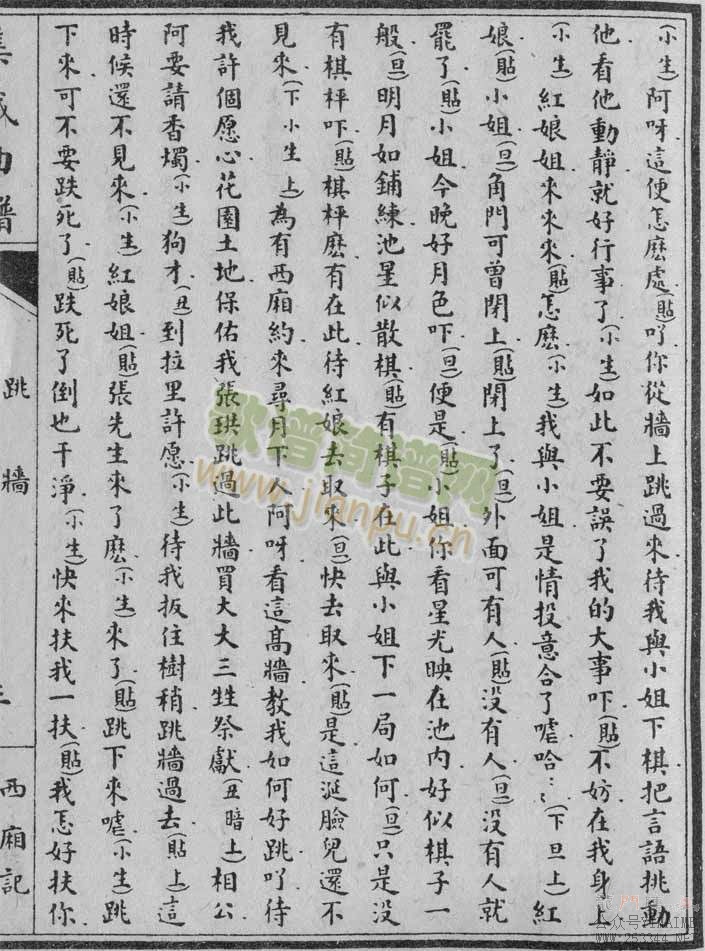 (小生)阿呀這便怎麽處(貼)吖你從牆上跳過來待我與小姐下棋把言語挑動
他看他動靜就好行事了(小生)如此不要誤了我的大事吓(貼)不妨在我身上
(小生)紅娘姐來來來(貼)怎麽(小生)我與小姐是情投意合了噓哈⋯(下旦上)紅
娘(貼)小姐(旦)角門可曾閉上(貼)閉上了(旦)外面可有人(貼)沒有人(旦)沒有人就
罷了(貼)小姐今晚好月色吓(旦)便是(貼)小姐你看星光映在池內好似棋子一
般(旦)明月如鋪練池星似散棋(貼)有棋子在此與小姐下一局如何(旦)只是沒
有棋枰吓(貼)棋枰麽有在此待紅娘去取來(旦)快去取來(貼)是這涎臉兒還不
見來(下小生上)為有西廂約來尋月下人阿呀看這高牆教我如何好跳吖待
我許個愿心花園土地保佑我張珙跳過此牆買大大三牲祭獻(丑暗上)相公
阿要請香燭(小生)狗才(丑)到拉里許愿(小生)待我扳住樹稍跳牆過去(貼上)這
時候還不見來(小生)紅娘姐(貼)張先生來了麽(小生)來了(貼)跳下來噓(小生)跳
下來可不要跌死了(貼)跌死了倒也干淨(小生)快來扶我一扶(貼)我怎好扶你
集成曲譜
跳牆
西廂記
歌谱简谱网
www.jianpu.cn